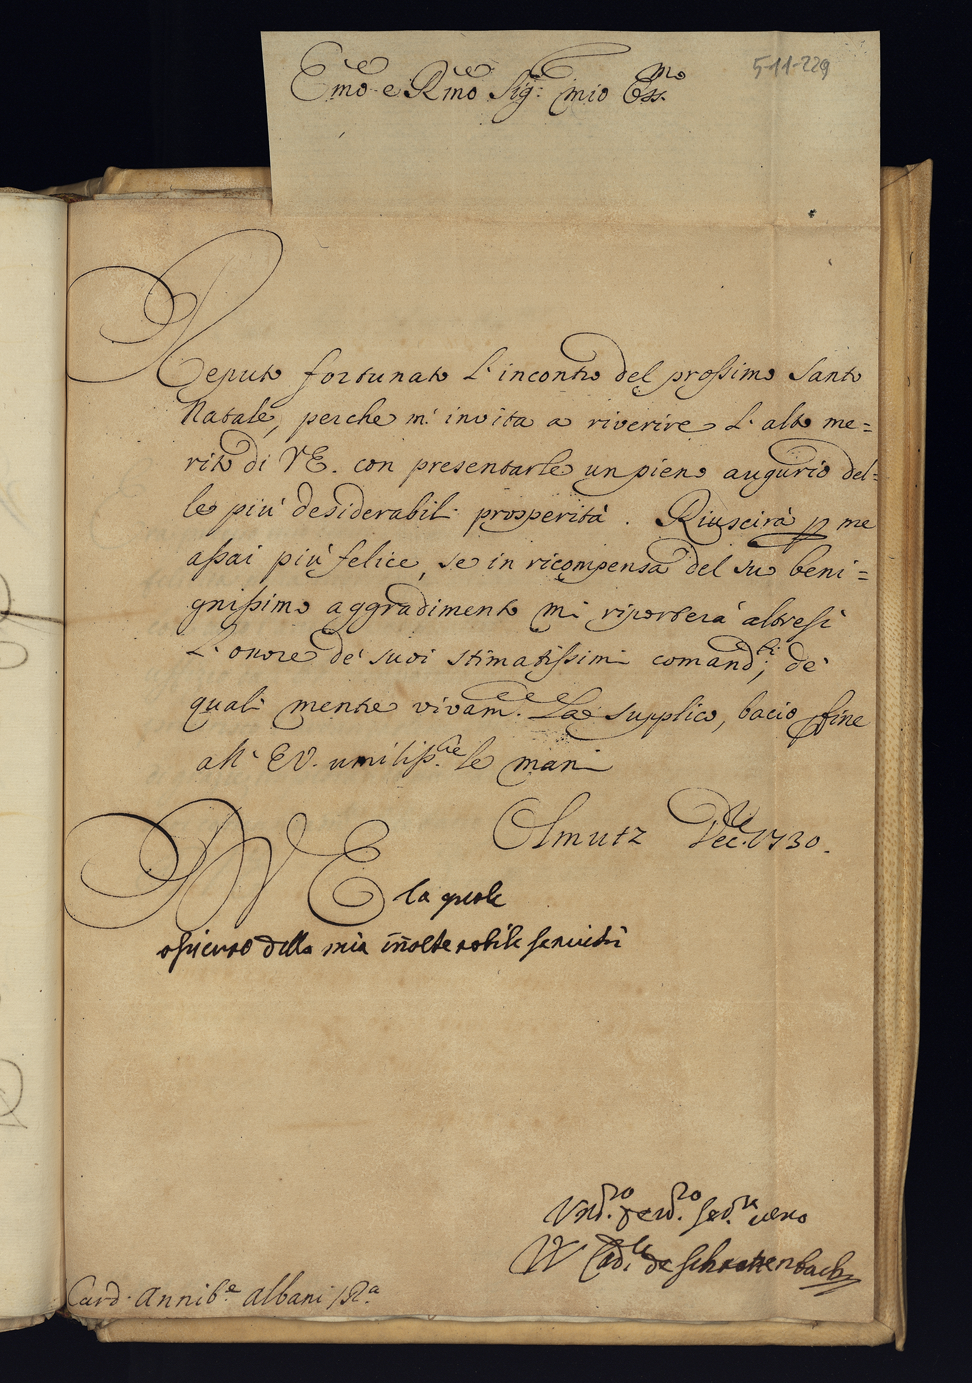 5-11-229
Emo e Rmo Sig: mio Oss.mo
Reputo fortunato l'incontro del prossimo Santo
Natale, perche m'invita a riverire l'alto me=
rito di VE. con presentarle un pieno augurio del=
le più desiderabili prosperità. Riuscirà p me
assai più felice, se in ricompensa del suo beni=
gnissimo aggradimento mi riporterà altresi
l'onore de' suoi stimatissimi comand.ti, de'
quali mentre vivam.e La supplico, bacio p fine
all'EV. umiliss.e le mani
Olmutz Dec. 1730.
D VE la quale
ossicuro della mia servitù
aff.mo vero
W Card.le de Schrattenbach
Card. Annib.e Albani /Ra